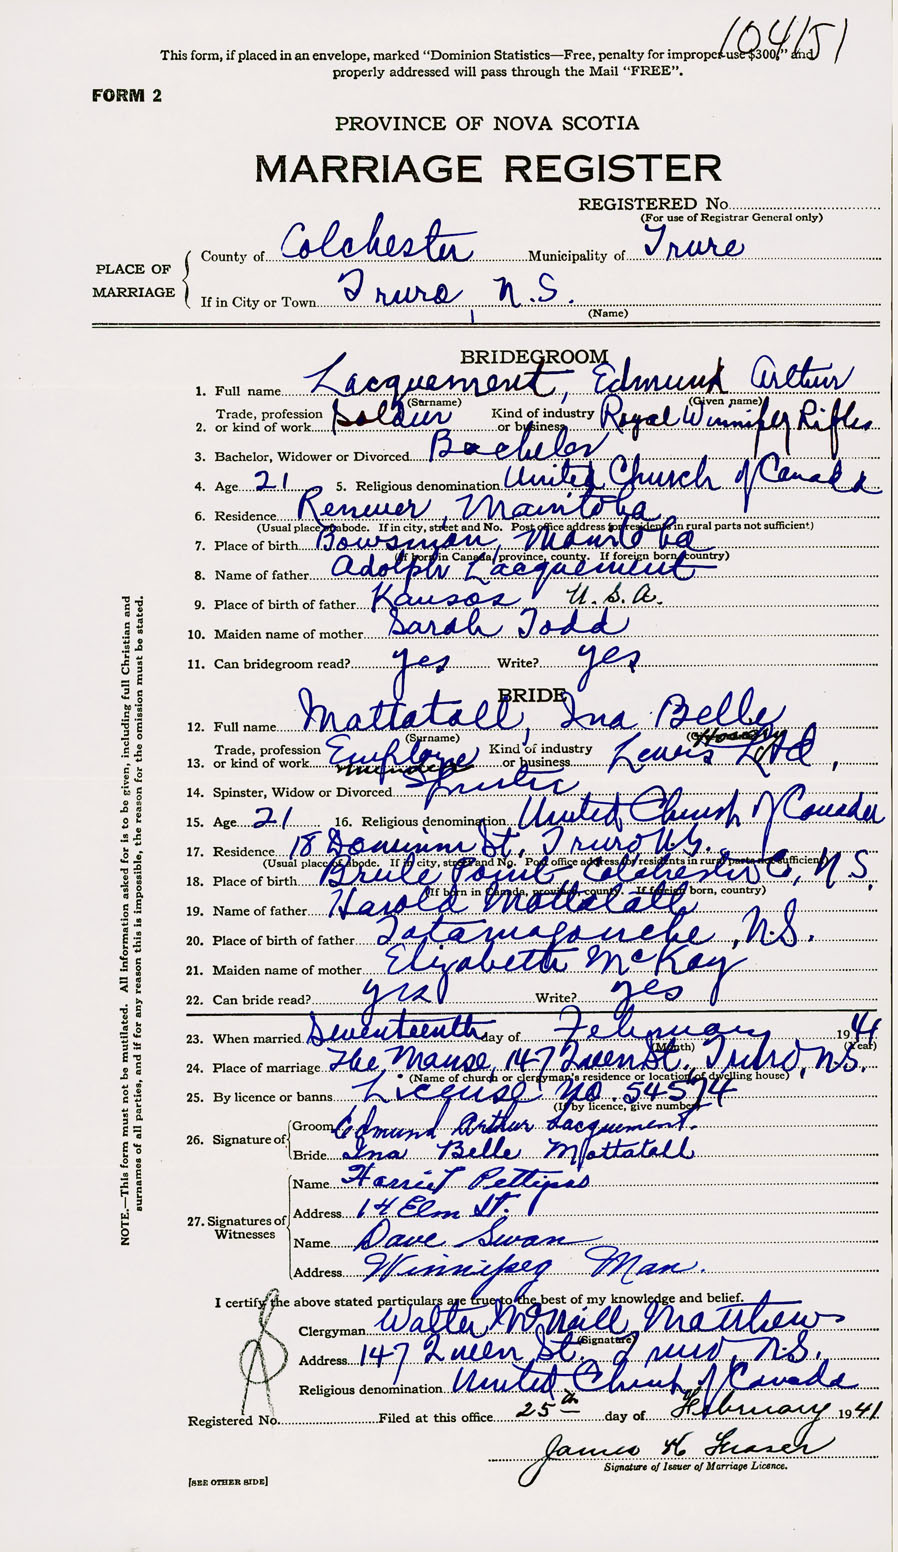 104151
This form, if placed in an envelope, marked "Dominion Statistics—Free, penalty for improper use $300," and
properly addressed will pass through the Mail "FREE".
FORM 2
PROVINCE OF NOVA SCOTIA
MARRIAGE REGISTER
REGISTERED No.
(For use of Registrar General only)
PLACE OF MARRIAGE
County of Colchester Municipality of Truro
If in City or Town Truro N.S.
(Name)
BRIDEGROOM
1. Full name Lacquement, Edmund Arthur
(Surname) (Given name)
2. Trade, profession or kind of work Soldier Kind of industry or business Royal Winnipeg Rifles
3. Bachelor, Widower or Divorced Bachelor
4. Age 21 5. Religious denomination United Church of Canada
6. Residence Renwer, Manitoba
(Usual place of abode. If in city, street and No. Post office address for residents in rural parts not sufficient)
7. Place of birth Bowsman, Manitoba
(If born in Canada, province, county. If foreign born, country)
8. Name of father Adolph Lacquement
9. Place of birth of father Kansas U.S.A.
10. Maiden name of mother Sarah Todd
11. Can bridegroom read? yes Write? yes
BRIDE
12. Full name Mattatall, Ina Belle
(Surname)
13. Trade, profession or kind of work Employee Kind of industry or business Lewis Ltd,
14. Spinster, Widow or Divorced Spinster
15. Age 21 16. Religious denomination United Church of Canada
17. Residence 18 Dominion St. Truro N.S.
(Usual place of abode. If in city, street and No. Post office address for residents in rural parts not sufficient)
18. Place of birth Brule Point Colchester Co, N.S.
(If born in Canada, province, county. If foreign born, country)
19. Name of father Harold Mattatall
20. Place of birth of father Tatamagouche, N.S.
21. Maiden name of mother Elizabeth McKay
22. Can bride read? yes Write? yes
23. When married Seventeenth day of February 1941
(Month) (Year)
24. Place of marriage The Manse, 147 Queen St., Truro, N.S.
(Name of church or clergyman's residence or location of dwelling house)
25. By licence or banns License No. 54574
(If by licence, give number)
26. Signature of Groom Edmund Arthur Lacquement.
Bride Ina Belle Mattatall
27. Signatures of Witnesses
Name Harriet Pettipas
Address 14 Elm St.
Name Dave Swan
Address Winnipeg Man.
I certify the above stated particulars are true to the best of my knowledge and belief.
Clergyman Walter McNeill Matthews
(Signature)
Address 147 Queen St. Truro, N.S.
Religious denomination United Church of Canada
Registered No. Filed at this office 25th day of February 1941
James K Fraser
Signature of Issuer of Marriage Licence.
[SEE OTHER SIDE]
NOTE.—This form must not be mutilated. All information asked for is to be given, including full Christian and
surnames of all parties, and if for any reason this is impossible, the reason for the omission must be stated.